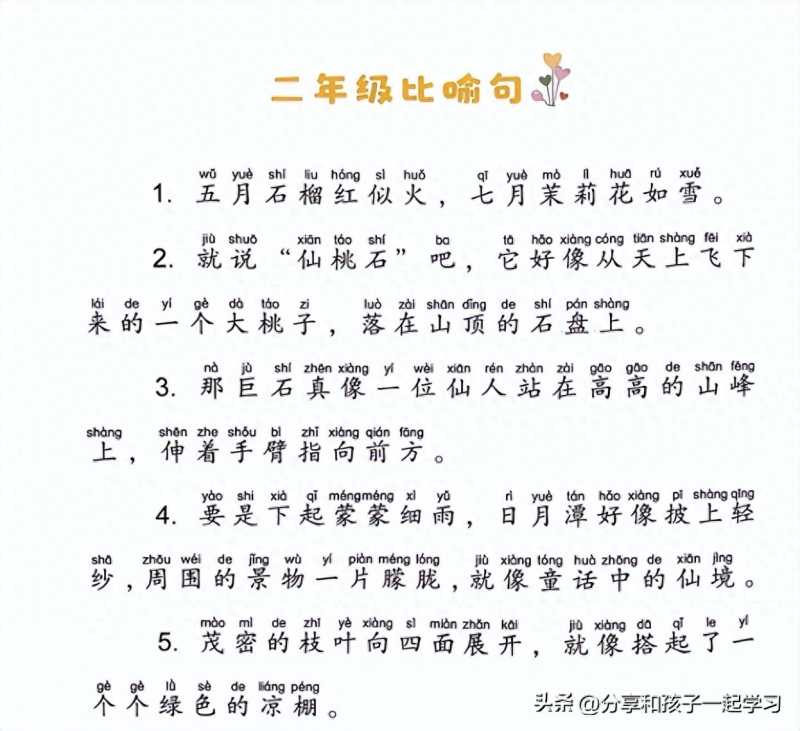 二年级比喻句
wǔ yuè shí liu hóng sì huǒ qī yuè mò lì huā rú xuě
1. 五月石榴红似火，七月茉莉花如雪。
jiù shuō xiān táo shí ba tā hǎo xiàng cóng tiān shàng fēi xià
2. 就说“仙桃石”吧，它好像从天上飞下
lái de yí gè dà táo zi luò zài shān dǐng de shí pán shàng
来的一个大桃子，落在山顶的石盘上。
nà jù shí zhēn xiàng yí wèi xiān rén zhàn zài gāo gāo de shān fēng
3. 那巨石真像一位仙人站在高高的山峰
shàng shēn zhe shǒu bì zhǐ xiàng qián fāng
上，伸着手臂指向前方。
yào shi xià qǐ méng méng xì yǔ rì yuè tán hǎo xiàng pī shàng qīng
4. 要是下起蒙蒙细雨，日月潭好像披上轻
shā zhōu wéi de jǐng wù yí piàn méng lóng jiù xiàng tóng huà zhōng de xiān jìng
纱，周围的景物一片朦胧，就像童话中的仙境。
mào mì de zhī yè xiàng sì miàn zhǎn kāi jiù xiàng dā qǐ le yí
5. 茂密的枝叶向四面展开，就像搭起了一
gè gè lǜ sè de liáng péng
个个绿色的凉棚。
头条 @分享和孩子一起学习